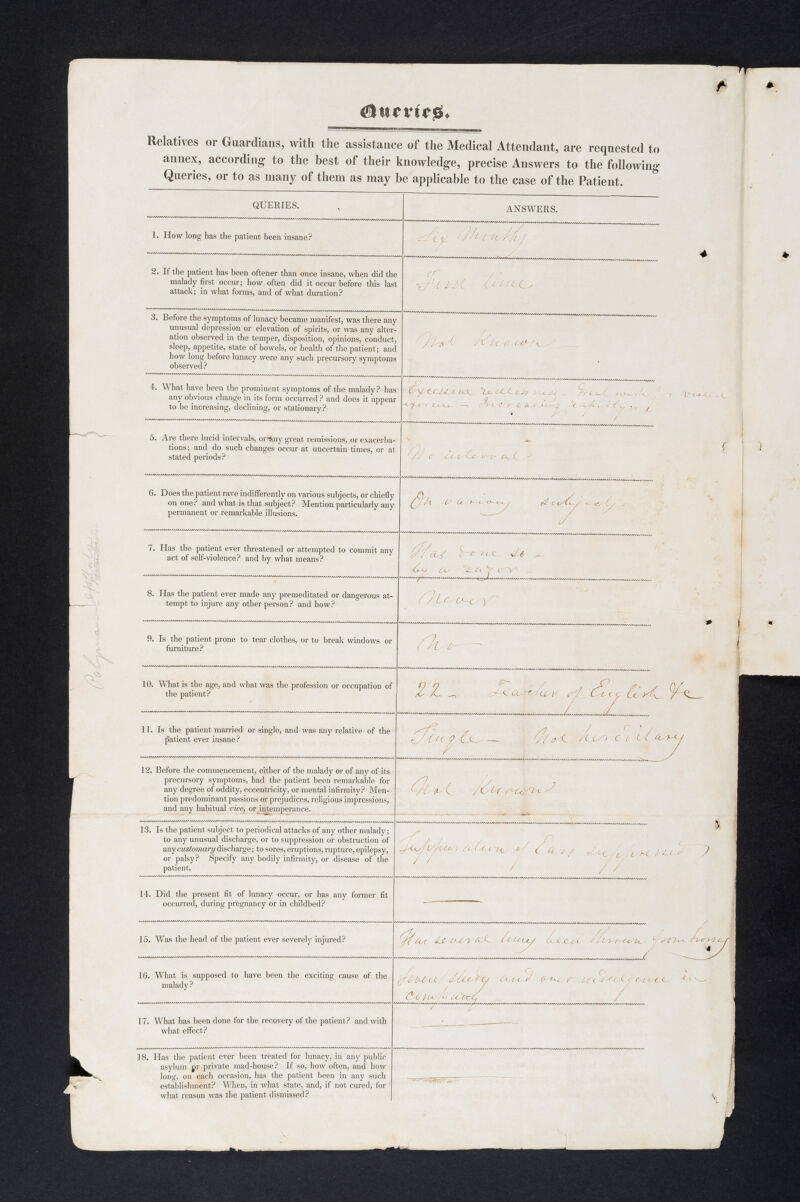 Queries.
Relatives or Guardians, with the assistance of the Medical Attendant, are requested to
annex, according to the best of their knowledge, precise Answers to the following
Queries, or to as many of them as may be applicable to the case of the Patient.
QUERIES.
ANSWERS.
1. How long has the patient been insane?
Six Months
2. If the patient has been oftener than once insane, when did the
malady first occur; how often did it occur before this last
attack; in what forms, and of what duration?
First time
3. Before the symptoms of lunacy became manifest, was there any
unusual depression or elevation of spirits, or was any alter-
ation observed in the temper, disposition, opinions, conduct,
sleep, appetite, state of bowels, or health of the patient; and
how long before lunacy were any such precursory symptoms
observed?
Not Known —
4. What have been the prominent symptoms of the malady? has
any obvious change in its form occurred? and does it appear
to be increasing, declining, or stationary?
Excessive restlessness — Great wish for violent
exercise — Increasing rapidly
5. Are there lucid intervals, or any great remissions, or exacerba-
tions; and do such changes occur at uncertain times, or at
stated periods?
No interval
6. Does the patient rave indifferently on various subjects, or chiefly
on one? and what is that subject? Mention particularly any
permanent or remarkable illusions.
On various subjects
7. Has the patient ever threatened or attempted to commit any
act of self-violence? and by what means?
Has done so —
by a razor
8. Has the patient ever made any premeditated or dangerous at-
tempt to injure any other person? and how?
Never
9. Is the patient prone to tear clothes, or to break windows or
furniture?
No
10. What is the age, and what was the profession or occupation of
the patient?
22 — Teacher of English &c
11. Is the patient married or single, and was any relative of the
patient ever insane?
Single — Not hereditary
12. Before the commencement, either of the malady or of any of its
precursory symptoms, had the patient been remarkable for
any degree of oddity, eccentricity, or mental infirmity? Men-
tion predominant passions or prejudices, religious impressions,
and any habitual vice, or intemperance.
Not Known
13. Is the patient subject to periodical attacks of any other malady;
to any unusual discharge, or to suppression or obstruction of
any customary discharge; to sores, eruptions, rupture, epilepsy,
or palsy? Specify any bodily infirmity, or disease of the
patient.
Suppuration of Ears suppressed
14. Did the present fit of lunacy occur, or has any former fit
occurred, during pregnancy or in childbed?
—
15. Was the head of the patient ever severely injured?
Has several times been thrown from horses
16. What is supposed to have been the exciting cause of the
malady?
Severe study and over indulgence in
company
17. What has been done for the recovery of the patient? and with
what effect?
—
18. Has the patient ever been treated for lunacy, in any public
asylum or private mad-house? If so, how often, and how
long, on each occasion, has the patient been in any such
establishment? When, in what state, and, if not cured, for
what reason was the patient dismissed?
—